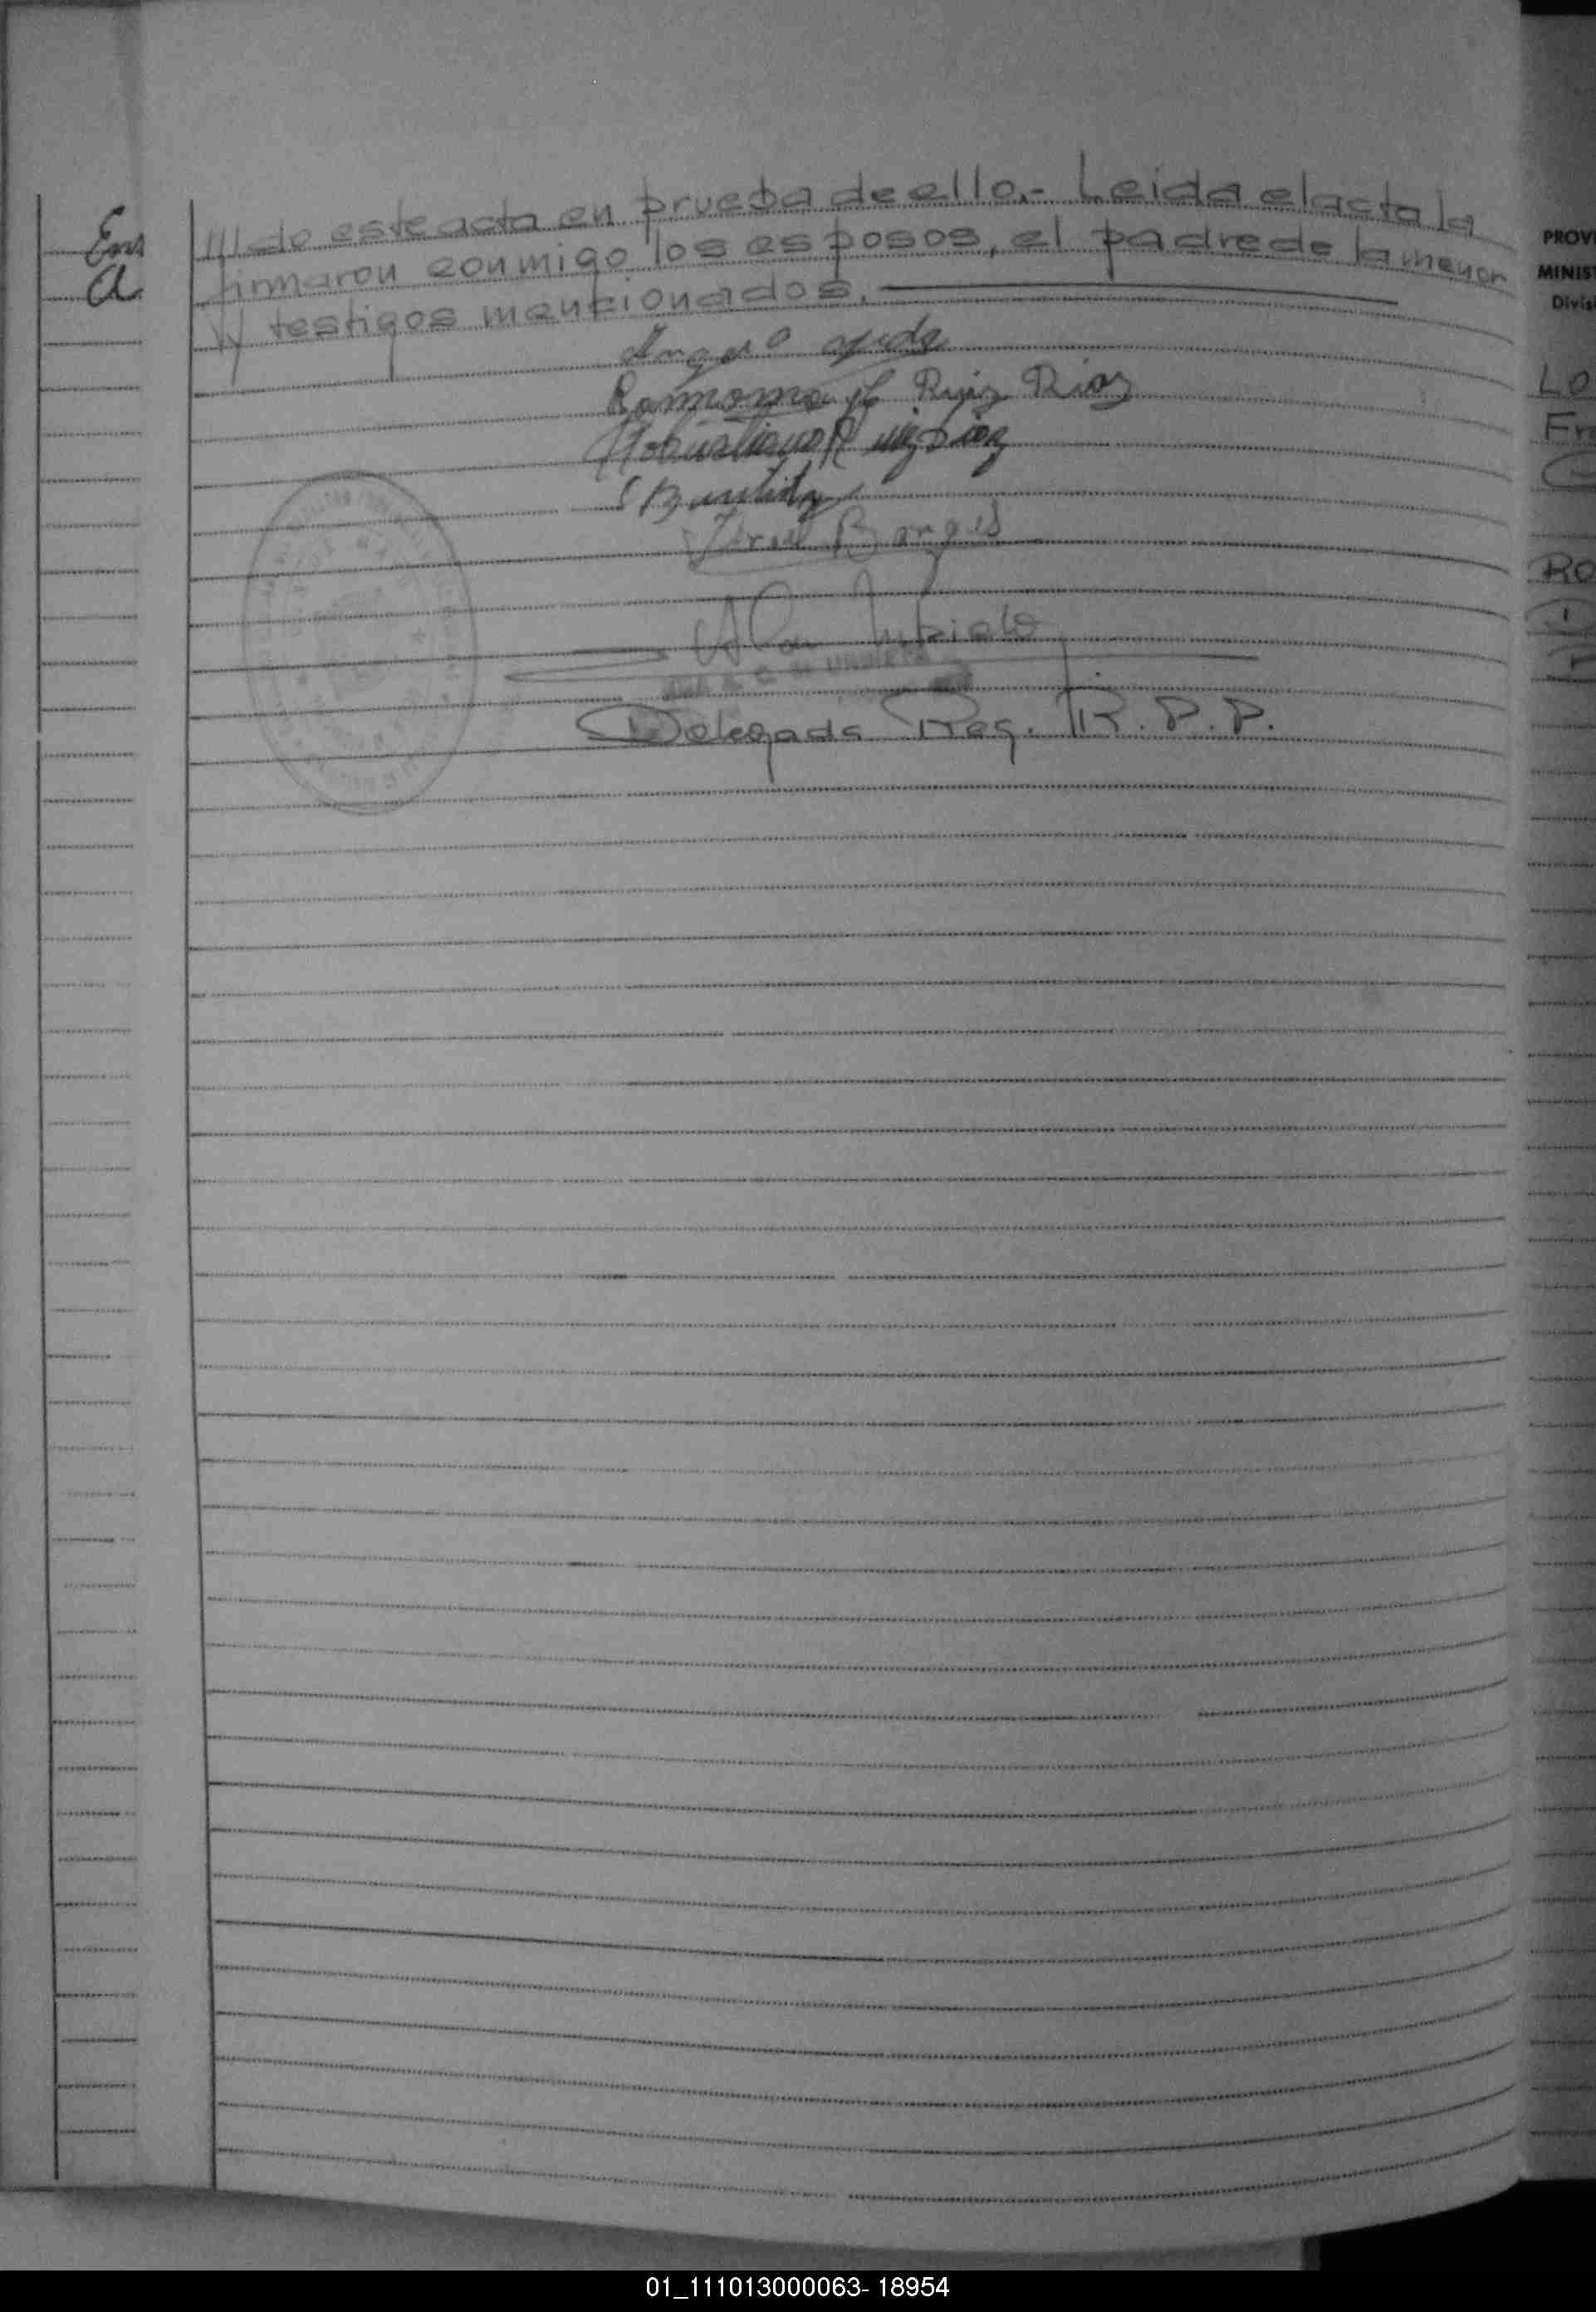 En
A
///do este acta en prueba de ello.- Leida el acta la
firmaron conmigo los esposos, el padre de la menor
y testigos mencionados.
Ramona H Ruiz Diaz
Robustiano Ruiz Diaz
Borges
Delegada Reg. R.P.P.
PROVI
MINIST
Divis
LO
Fr
RO
01_111013000063- 18954